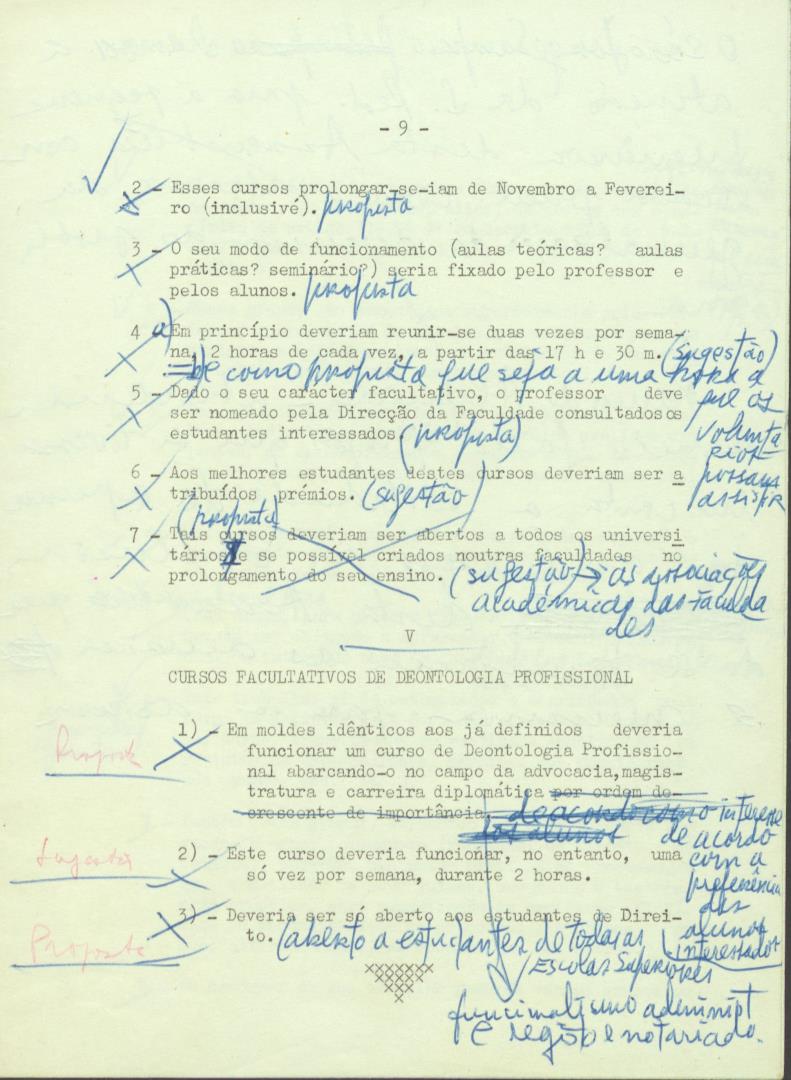 - 9 -
2 - Esses cursos prolongar-se-iam de Novembro a Feverei-
ro (inclusivé). proposta
3 - O seu modo de funcionamento (aulas teóricas? aulas
práticas? seminário?) seria fixado pelo professor e
pelos alunos. proposta
4 a) Em princípio deveriam reunir-se duas vezes por sema-
na, 2 horas de cada vez, a partir das 17 h e 30 m. (sugestão)
b) e como proposta que seja a uma hora a
que os
volunta
rios
possam
assistir
5 - Dado o seu carácter facultativo, o professor deve
ser nomeado pela Direcção da Faculdade consultados os
estudantes interessados. (proposta)
6 - Aos melhores estudantes destes cursos deveriam ser a
tribuídos prémios. (sugestão)
(proposta)
7 - Tais cursos deveriam ser abertos a todos os universi
tários e se possível criados noutras faculdades no
prolongamento do seu ensino. (sugestão) → as associações
académicas das Faculda
des
V
CURSOS FACULTATIVOS DE DEONTOLOGIA PROFISSIONAL
Proposta
1) - Em moldes idênticos aos já definidos deveria
funcionar um curso de Deontologia Profissio-
nal abarcando-o no campo da advocacia,magis-
tratura e carreira diplomática por ordem de-
crescente de importância. de acordo com o interesse
dos alunos de acordo
com a
preferência
dos
alunos
interessados
Sugestão
2) - Este curso deveria funcionar, no entanto, uma
só vez por semana, durante 2 horas.
Proposta
3) - Deveria ser só aberto aos estudantes de Direi-
to. (aberto a estudantes de todas as
Escolas Superiores
funcionalismo administ
e registo e notariado.